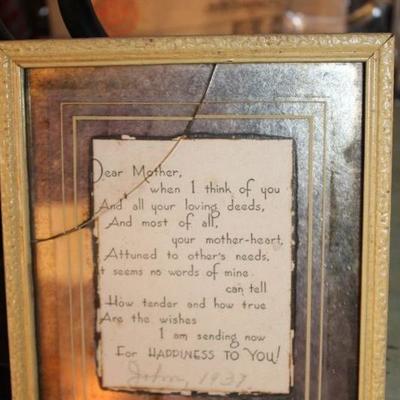 Dear Mother,
when I think of you
And all your loving deeds,
And most of all,
your mother-heart,
Attuned to other's needs,
It seems no words of mine
can tell
How tender and how true
Are the wishes
I am sending now
For HAPPINESS TO YOU!
Johnny 1937